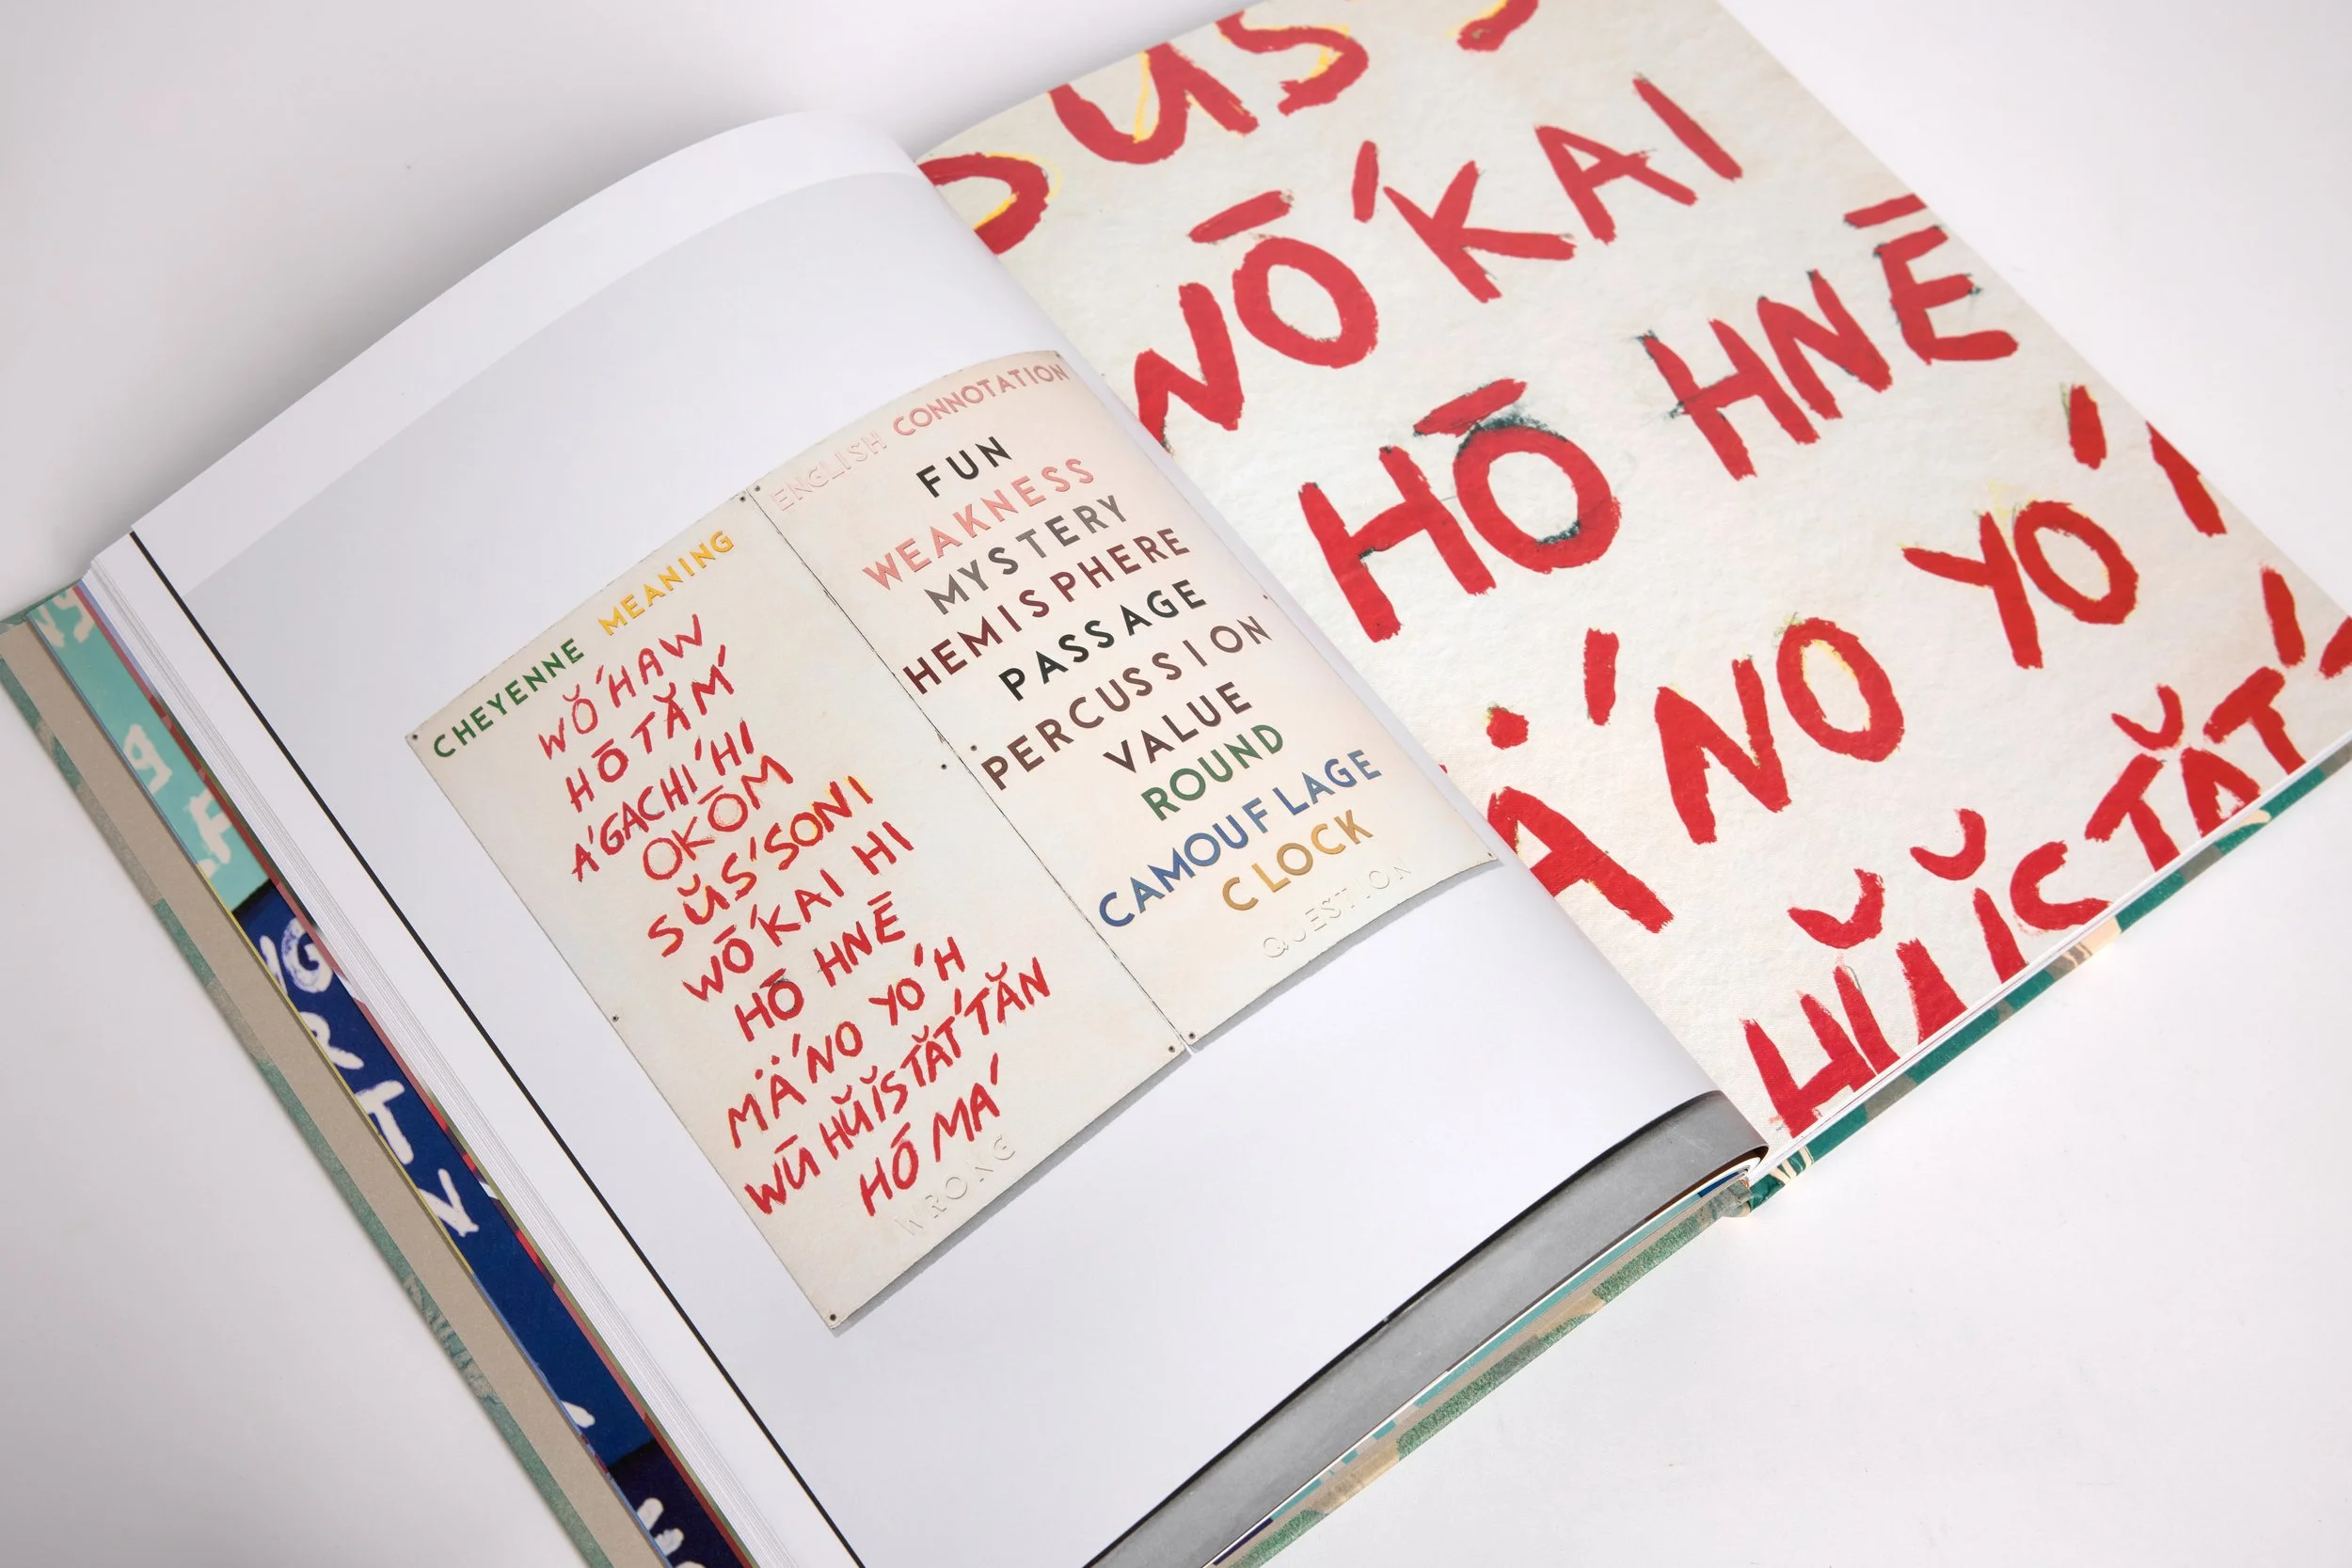 CHEYENNE MEANING
WŎ´HAW
HŌTĂM´
A´GACHI´HI
OKŌM
SŬS´SONI
WŌ´KAI HI
HŌ HNĒ
MÄ´NO YO´H
WŪHŬĬSTĂT´TĂN
HŌ MA´
WRONG
ENGLISH CONNOTATION
FUN
WEAKNESS
MYSTERY
HEMISPHERE
PASSAGE
PERCUSSION
VALUE
ROUND
CAMOUFLAGE
CLOCK
QUESTION
ŬS´
WŌ´KAI
HŌ HNĒ
Ä´NO YO´
HŬĬSTĂT´